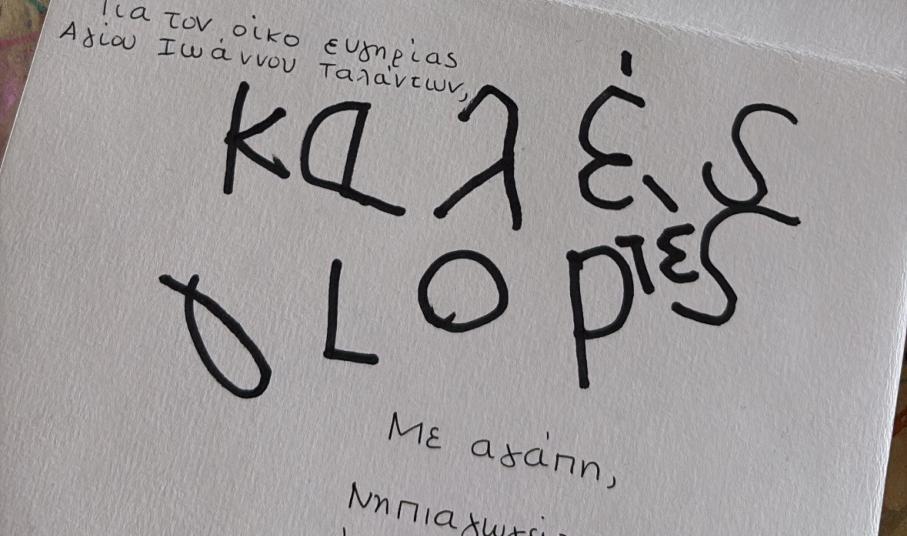 Για τον οίκο ευγηρίας
Αγίου Ιωάννου Ταλάντων,
καλές
γιορτές
Με αγάπη,